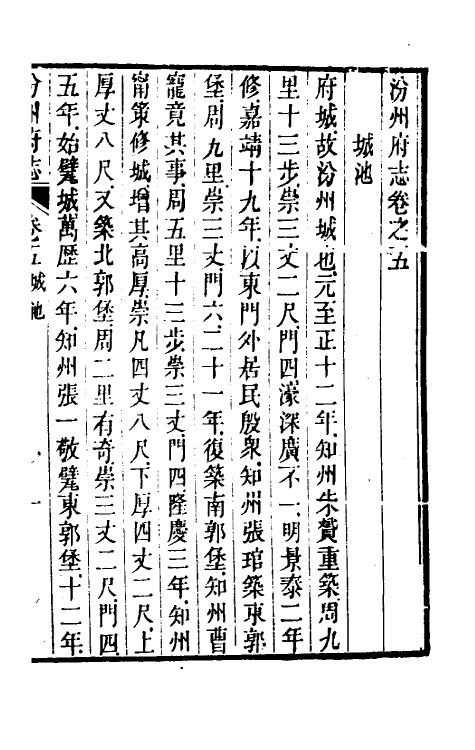 汾州府志卷之五
城池
府城故汾州城也元至正十二年知州朱贊重築周九
里十三步崇三丈二尺門四濠深廣不一明景泰二年
修嘉靖十九年以東門外居民殷衆知州張琯築東郭
堡周九里崇三丈門六二十一年復築南郭堡知州曹
寵竟其事周五里十三步崇三丈門四隆慶三年知州
甯策修城增其高厚崇凡四丈八尺下厚四丈二尺上
厚丈八尺又築北郭堡周二里有奇崇三丈二尺門四
五年始甓城萬歷六年知州張一敬甓東郭堡十二年
汾州府志 卷之五城池 一